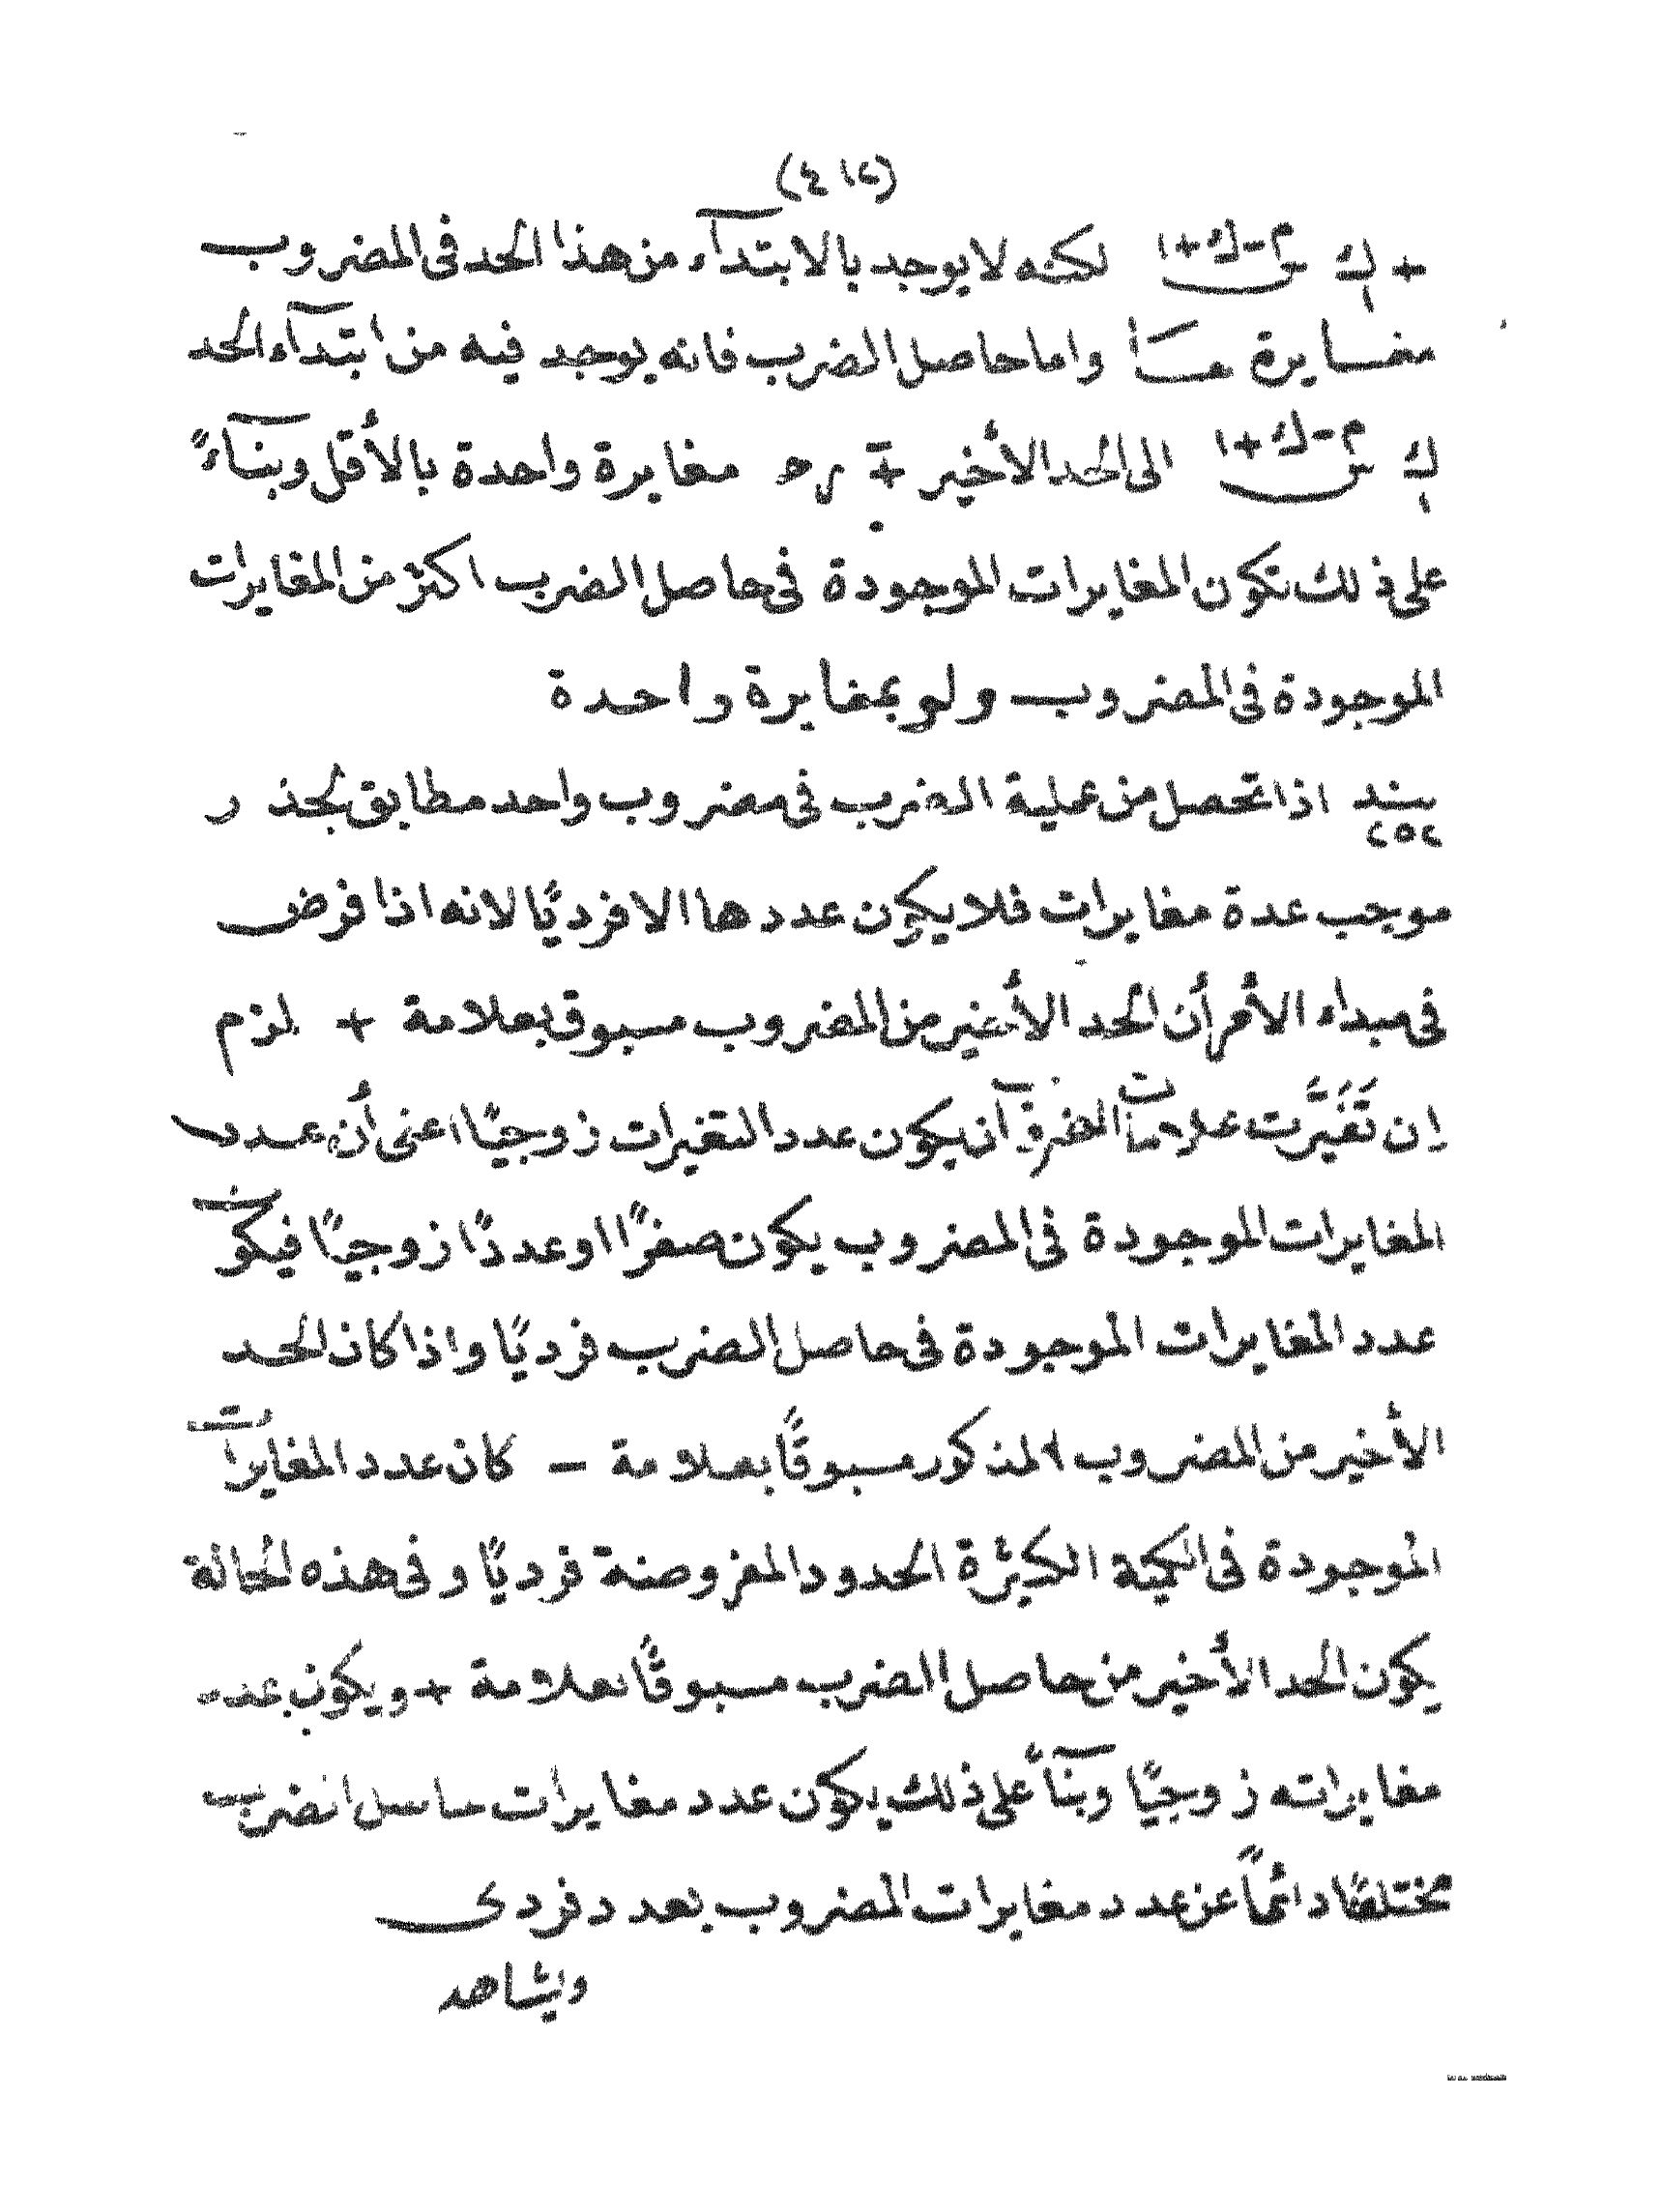 (٤١٢)
+ ك١ س م-ك+١ لكنه لا يوجد بالابتدآء من هذا الحد فى المضروب
مغايرة مسا واما حاصل الضرب فانه يوجد فيه من ابتدآء الحد
ك١ س م-ك+١ الى الحد الأخير ∓ مغايرة واحدة بالأقل وبنآءً
على ذلك تكون المغايرات الموجودة فى حاصل الضرب اكثر من المغايرات
الموجودة فى المضروب ولو بمغايرة واحدة
بند اذا تحصل من عملية الضرب فى مضروب واحد مطابق لجذر
٢٥٢
موجب عدة مغايرات فلا يكون عددها الا فرديًا لانه اذا فرض
فى مبداء الأمر أن الحد الأخير من المضروب مسبوق بعلامة + لزم
ان تَغَيَّرت علامات المضروب ان يكون عدد التغيرات زوجيًا اعنى أن عدد
المغايرات الموجودة فى المضروب يكون صفرًا او عددًا زوجيًا فيكون
عدد المغايرات الموجودة فى حاصل الضرب فرديًا واذا كان الحد
الأخير من المضروب المذكور مسبوقًا بعلامة - كان عدد المغايرات
الموجودة فى الكمية الكثيرة الحدود المفروضة فرديًا وفى هذه الحالة
يكون الحد الأخير من حاصل الضرب مسبوقًا بعلامة + ويكون عدد
مغايراته زوجيًا وبنآً على ذلك يكون عدد مغايرات حاصل الضرب
مختلفًا دائمًا عن عدد مغايرات المضروب بعدد فردى
ويشاهد